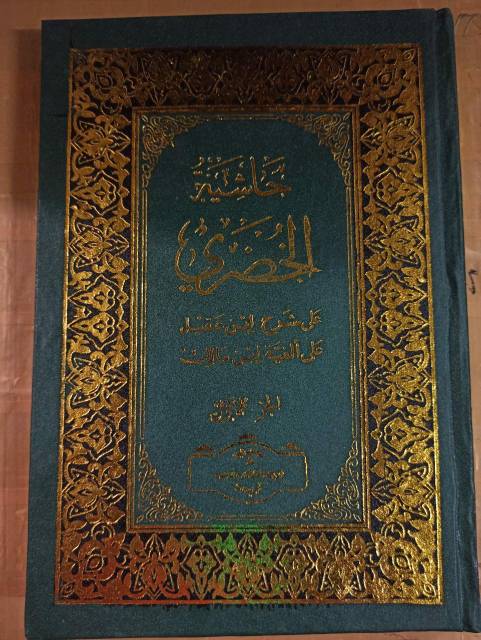 حَاشِيَةُ
الخُضَرِي
عَلى شَرح ابن عقيل
عَلى ألفية ابن مالك
الجزء